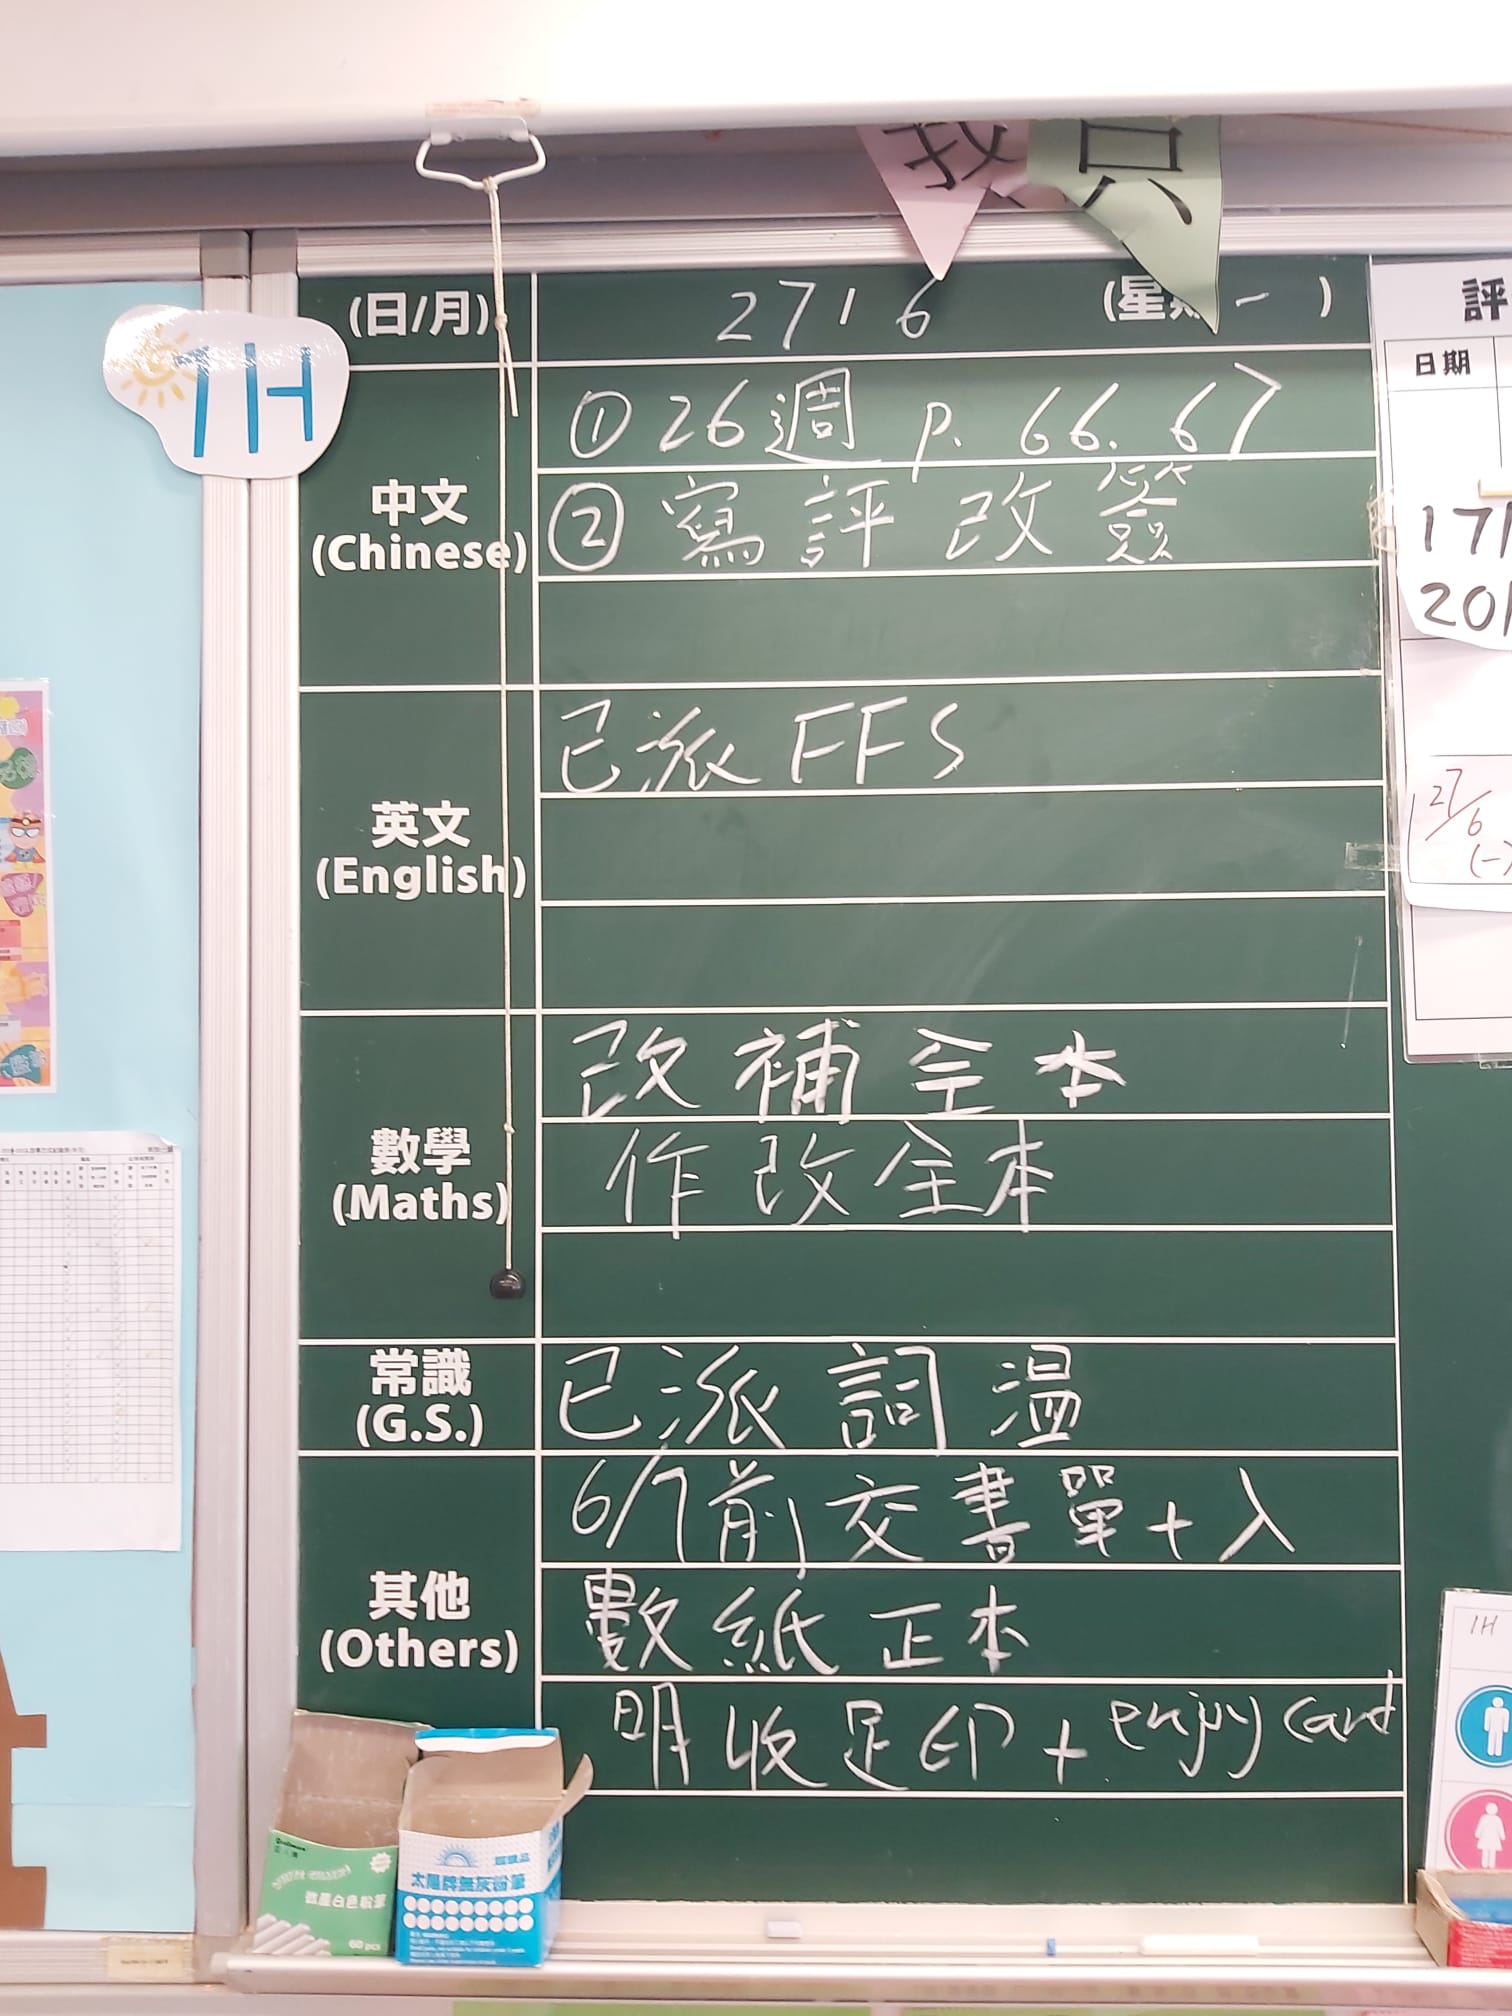 我 只
(日/月) 27/6 (星期一)
1H
中文
(Chinese)
① 26週 p. 66. 67
② 寫評改簽
英文
(English)
已派FFS
數學
(Maths)
改補全本
作改全本
常識
(G.S.)
已派詞溫
其他
(Others)
6/7前交書單+入
數紙正本
明收足印+enjoy card
評
日期
17/
20/
27/6
(一)
1H
60 pcs
太陽牌無灰粉筆